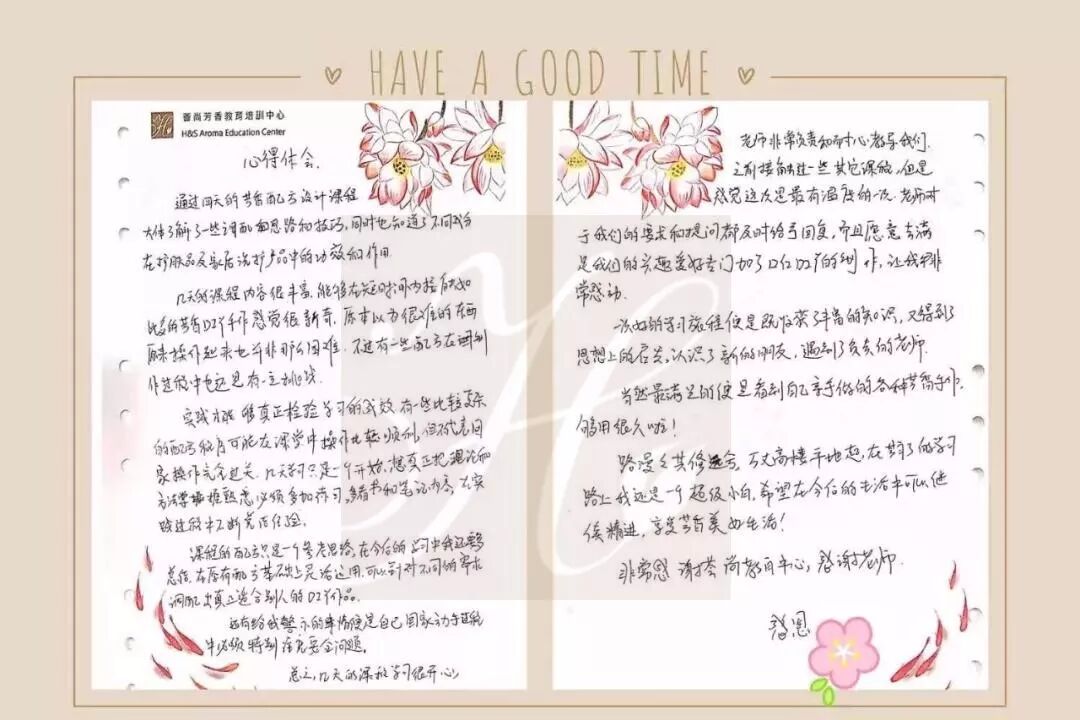 HAVE A GOOD TIME
荟尚芳香教育培训中心
H&S Aroma Education Center
心得体会.
通过四天的芳香配方设计课程
大体了解了一些调配的思路和技巧,同时也知道了不同成分
在护肤品及家居洗护产品中的功效和作用.
几天的课程内容很丰富,能够在短时间内接触如
此多的芳香DIY手作感觉很新奇,原本以为很难的东西
原来操作起来也并非那么困难.不过有一些配方在调制
作过程中也还是有一定挑战.
实践才能够真正检验学习的成效,有一些比较复杂
的配方的有可能在课堂中操作比较顺利,但不代表回
家操作完全过关.几天学习只是一个开始,想真正把理论和
方法掌握熟悉必须多加练习,多看书和笔记内容,在实
践过程中不断总结经验.
课程的配方只是一个参考思路,在今后的学习中我还要多
总结,在原有配方基础上灵活运用,可以针对不同的需求
调配出真正适合别人的DIY作品.
还有给我警示的事情便是自己回家动手过程
中必须特别注意安全问题.
总之,几天的课程学习很开心,
老师非常负责和耐心教导我们.
之前接触过一些其它课程,但是
感觉这次是最有温度的一次.老师对
于我们的要求和提问都及时给予回复,而且愿意去满
足我们的兴趣爱好专门加了口红DIY的制作,让我非
常感动.
一次好的学习旅程便是既收获了丰富的知识,又得到了
思想上的启发,认识了新的朋友,遇到了负责的老师.
当然最满足的便是看到自己亲手做的各种芳香手作,
够用很久啦!
路漫漫其修远兮,万丈高楼平地起,在芳香的学习
路上我还是一个超级小白,希望在今后的生活中可以继
续精进,享受芳香美好生活!
非常感谢荟尚教育中心,感谢老师.